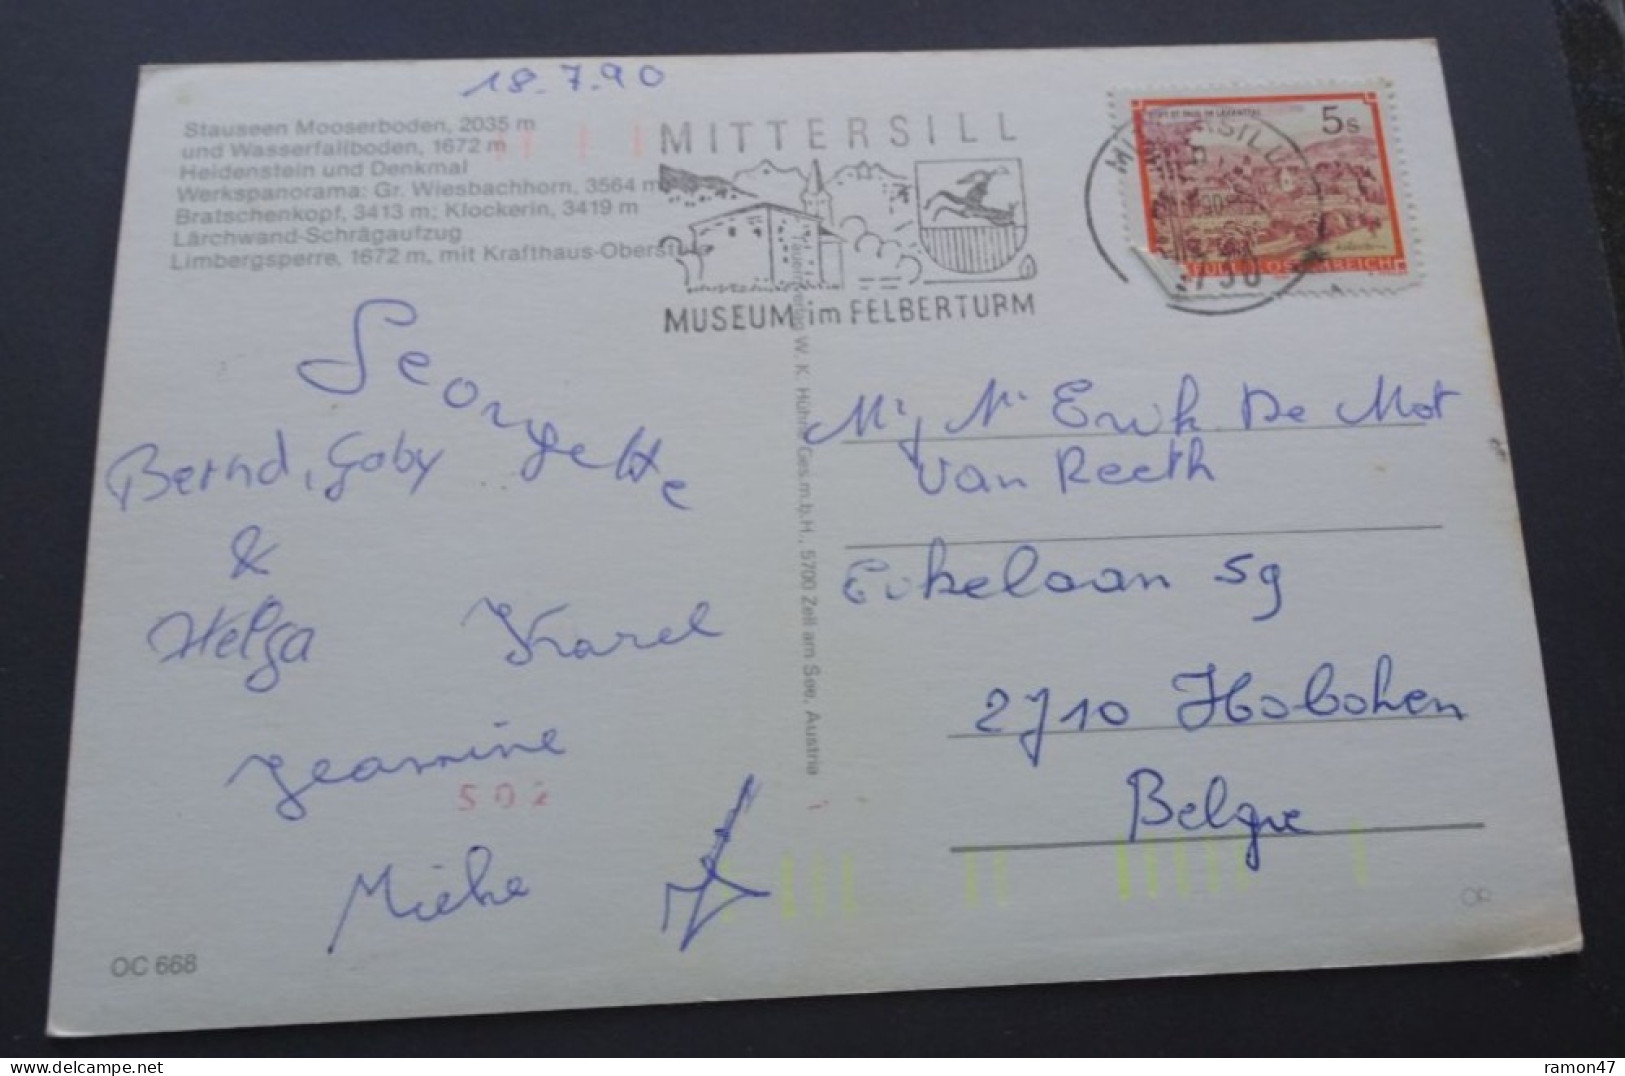 18.7.90
Stauseen Mooserboden, 2035 m
und Wasserfallboden, 1672 m
Heidenstein und Denkmal
Werkspanorama: Gr. Wiesbachhorn, 3564 m
Bratschenkopf, 3413 m; Klockerin, 3419 m
Lärchwand-Schrägaufzug
Limbergsperre, 1672 m, mit Krafthaus-Oberstufe
MITTERSILL
MUSEUM im FELBERTURM
5 S
STIFT ST. PAUL IM LAVANTTAL
REPUBLIK ÖSTERREICH
MITTERSILL
5730
Georgette
Bernd, Gaby
&
Helga
Karel
Jeannine
502
Mieke
OC 668
Tauernverlag W. K. Hühne Ges.m.b.H., 5700 Zell am See, Austria
Mr, Mr Erik De Mot
Van Reeth
Eikelaan 59
2710 Hoboken
Belgie
ramon47